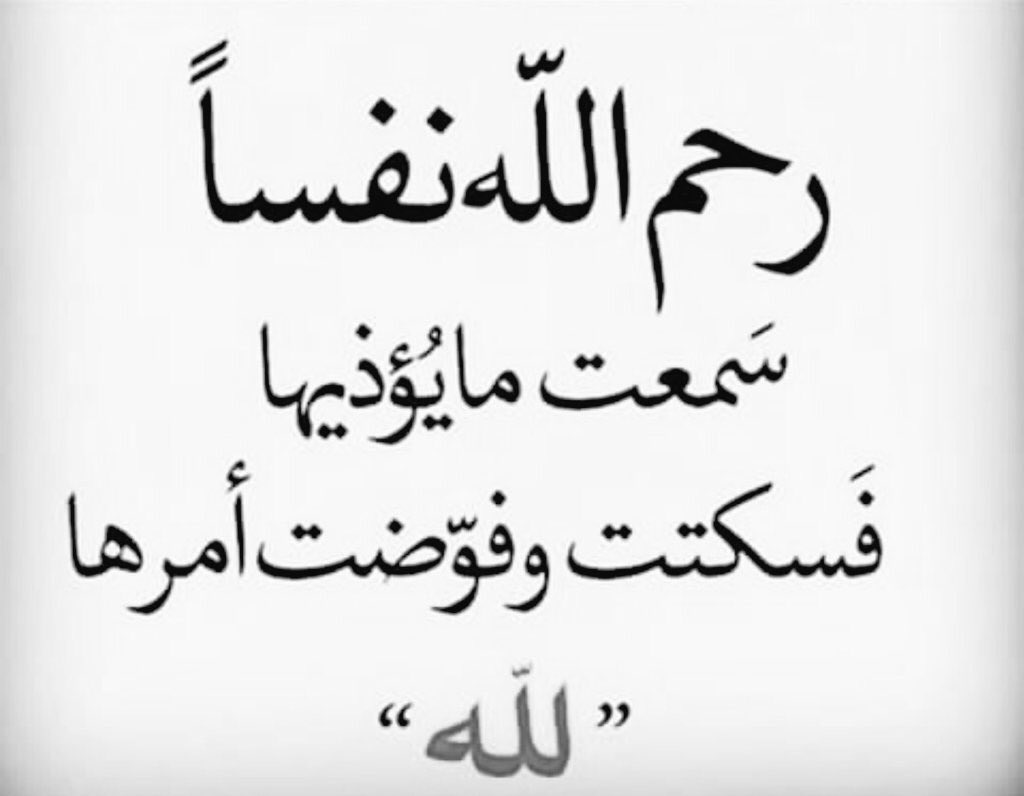 رحم اللّه نفساً
سَمعت مايُؤذيها
فَسكتت وفوّضت أمرها
”للّه“